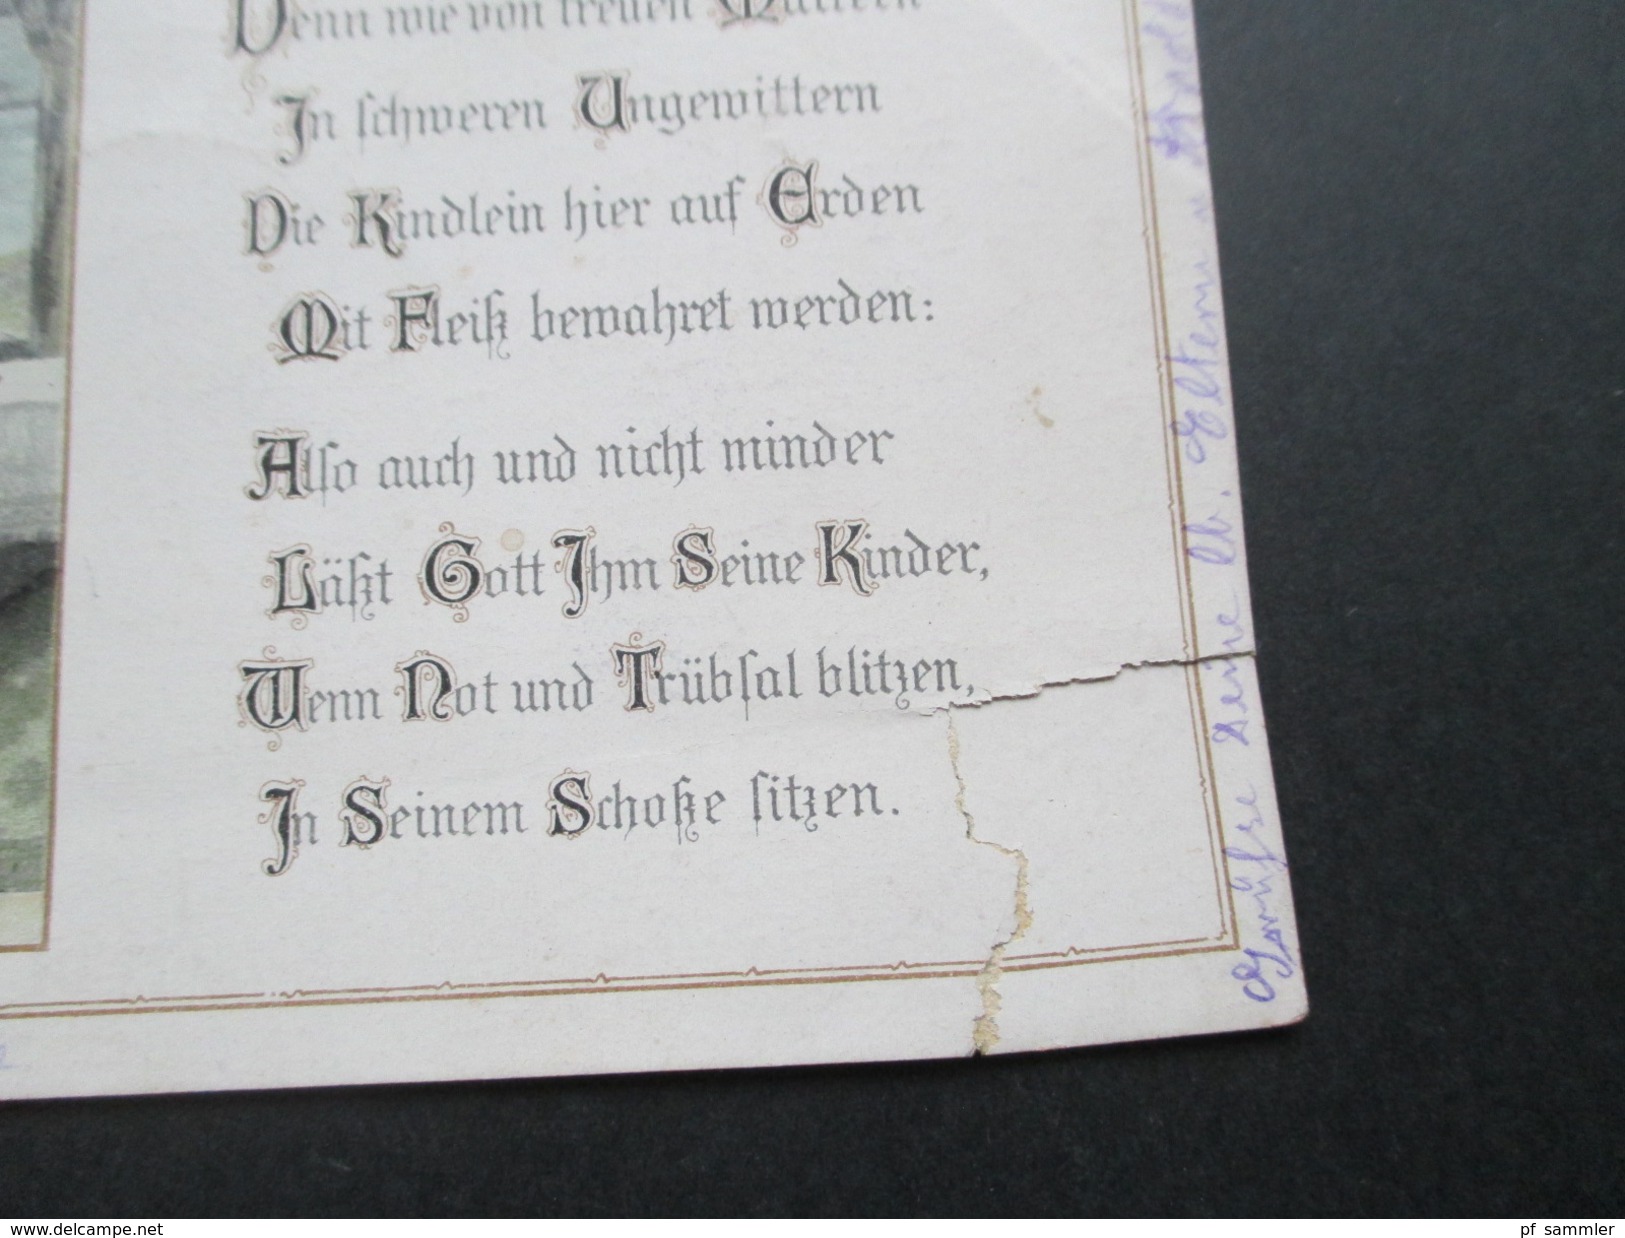 Denn wie von treuen Müttern
In schweren Ungewittern
Die Kindlein hier auf Erden
Mit Fleiß bewahret werden:
Also auch und nicht minder
Läßt Gott Ihm Seine Kinder,
Wenn Not und Trübsal blitzen,
In Seinem Schoße sitzen.
Grüsse Deine lb. Eltern u
www.delcampe.net
pf_sammler